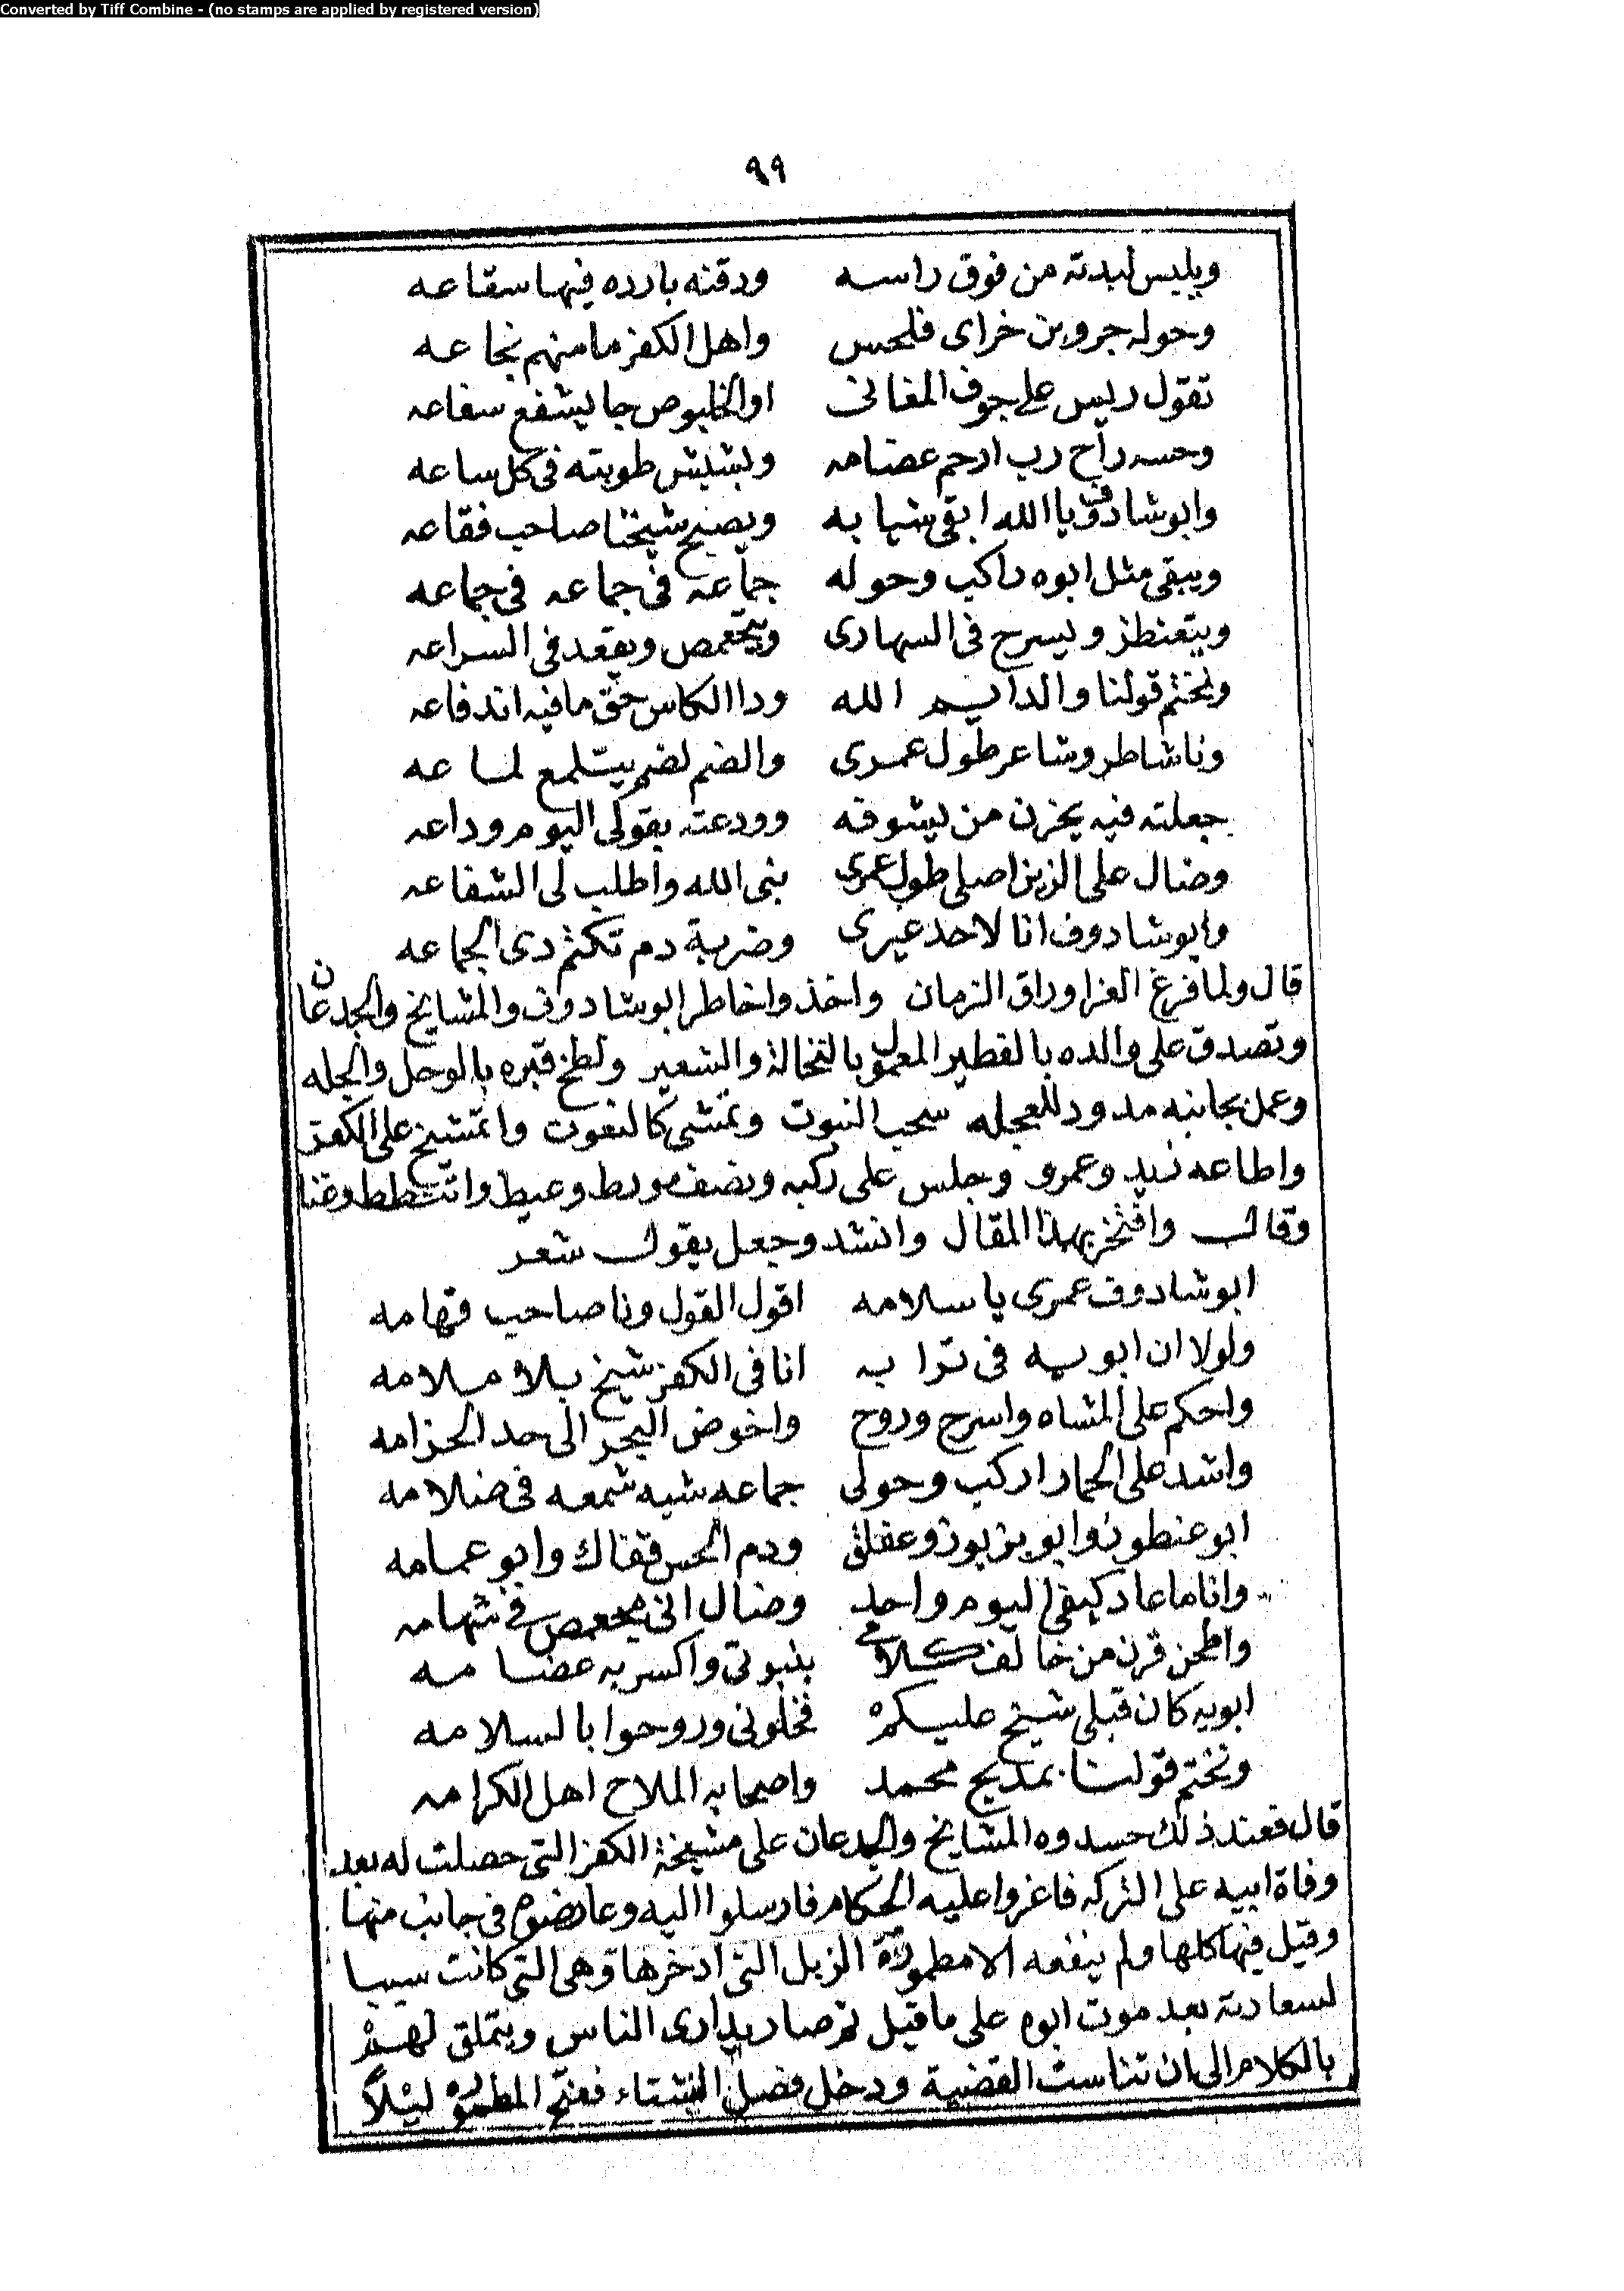 Converted by Tiff Combine - (no stamps are applied by registered version)
٩٩
ويلبس لبدته من فوق راسه ودقنه بارده فيها سقاعه
وحوله جرو بن خراى فلحس واهل الكفر مامنهم نجاعه
تقول ريس على جوف المغانى او الخلبوص جا يشفع سفاعه
وحسه راح رب ارحم عضامه وبشبش طوبته فى كل ساعه
وابو شادوف يا الله ابقى شبابه ويصبح شيخنا صاحب فقاعه
ويبقى مثل ابوه راكب وحوله جماعه فى جماعه فى جماعه
ويتعنطز ويسرح فى السهارى ويتجعمص ويقعد فى السراعه
ونختم قولنا والدايم الله ودا الكاس حق مافيه اندفاعه
ونا شاطر وشاعر طول عمرى والضم لضم يتلمع لماعه
جعلته فيه يحزن من يشوفه وودعته بقولى اليوم وداعه
وضال على الزين اصلى طول عمرى نبى الله واطلب لى الشفاعه
وابو شادوف انا لاحد غيرى وضربة دم تكتم دى الجماعه
قال ولما فرغ العزا وراق الزمان واخذ واخاطر ابو شادوف والمشايخ والجدعان
وتصدق على والده بالفطير المعمول بالنخالة والشعير ولطخ قبره بالوحل والجله
وعمل بجانبه مدود للعجله سحب النبوت وتمشى كالنعوت واتمشيخ على الكفر
واطاعه زيد وعمرو وجلس على ركبه ونصف وربط وعيط واتشطط وغنا
وقال وافتخر بهذا المقال وانشد وجعل يقول شعر
ابو شادوف عمرى يا سلامه اقول القول ونا صاحب فهامه
ولولا ان ابويه فى ترابه انا فى الكفر شيخ بلا ملامه
واحكم على المشاه واسرح وروح واخوض البحر الى حد الحزامه
واشد على الحمار اركب وحولى جماعه شبه شمعه فى ضلامه
ابو عنطوز وابو بزبوز وعفلق ودم الحس قفاك وابو عمامه
وانا ما عاد كيفى اليوم واحد وضال انى مجعمص فى شهامه
واطحن قرن من خالف كلامى بنبوتى واكسر به عضامه
ابويه كان قبلى شيخ عليكم فخلونى وروحوا بالسلامه
ونختم قولنا بمديح محمد واصحابه الملاح اهل الكرامه
قال فعند ذلك حسدوه المشايخ والجدعان على مشيخة الكفر التى حصلت له بعد
وفاة ابيه على التركه فاغروا عليه الحكام فارسلوا اليه وعارضوه فى جانب منها
وقيل فيها كلها ولم ينفعه الا مطمورة الزبل التى ادخرها وهى التى كانت سببا
لسعادته بعد موت ابوه على ما قيل ثم صار يدارى الناس ويتملق لهم
بالكلام الى ان تناست القضية ودخل فصل الشتاء ففتح المطموره ليلاً